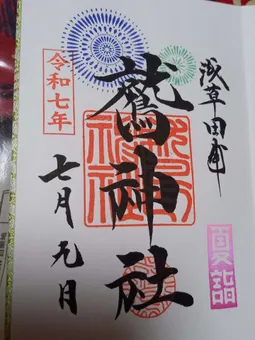 浅草田甫
鷲神社
令和七年
七月九日
夏詣